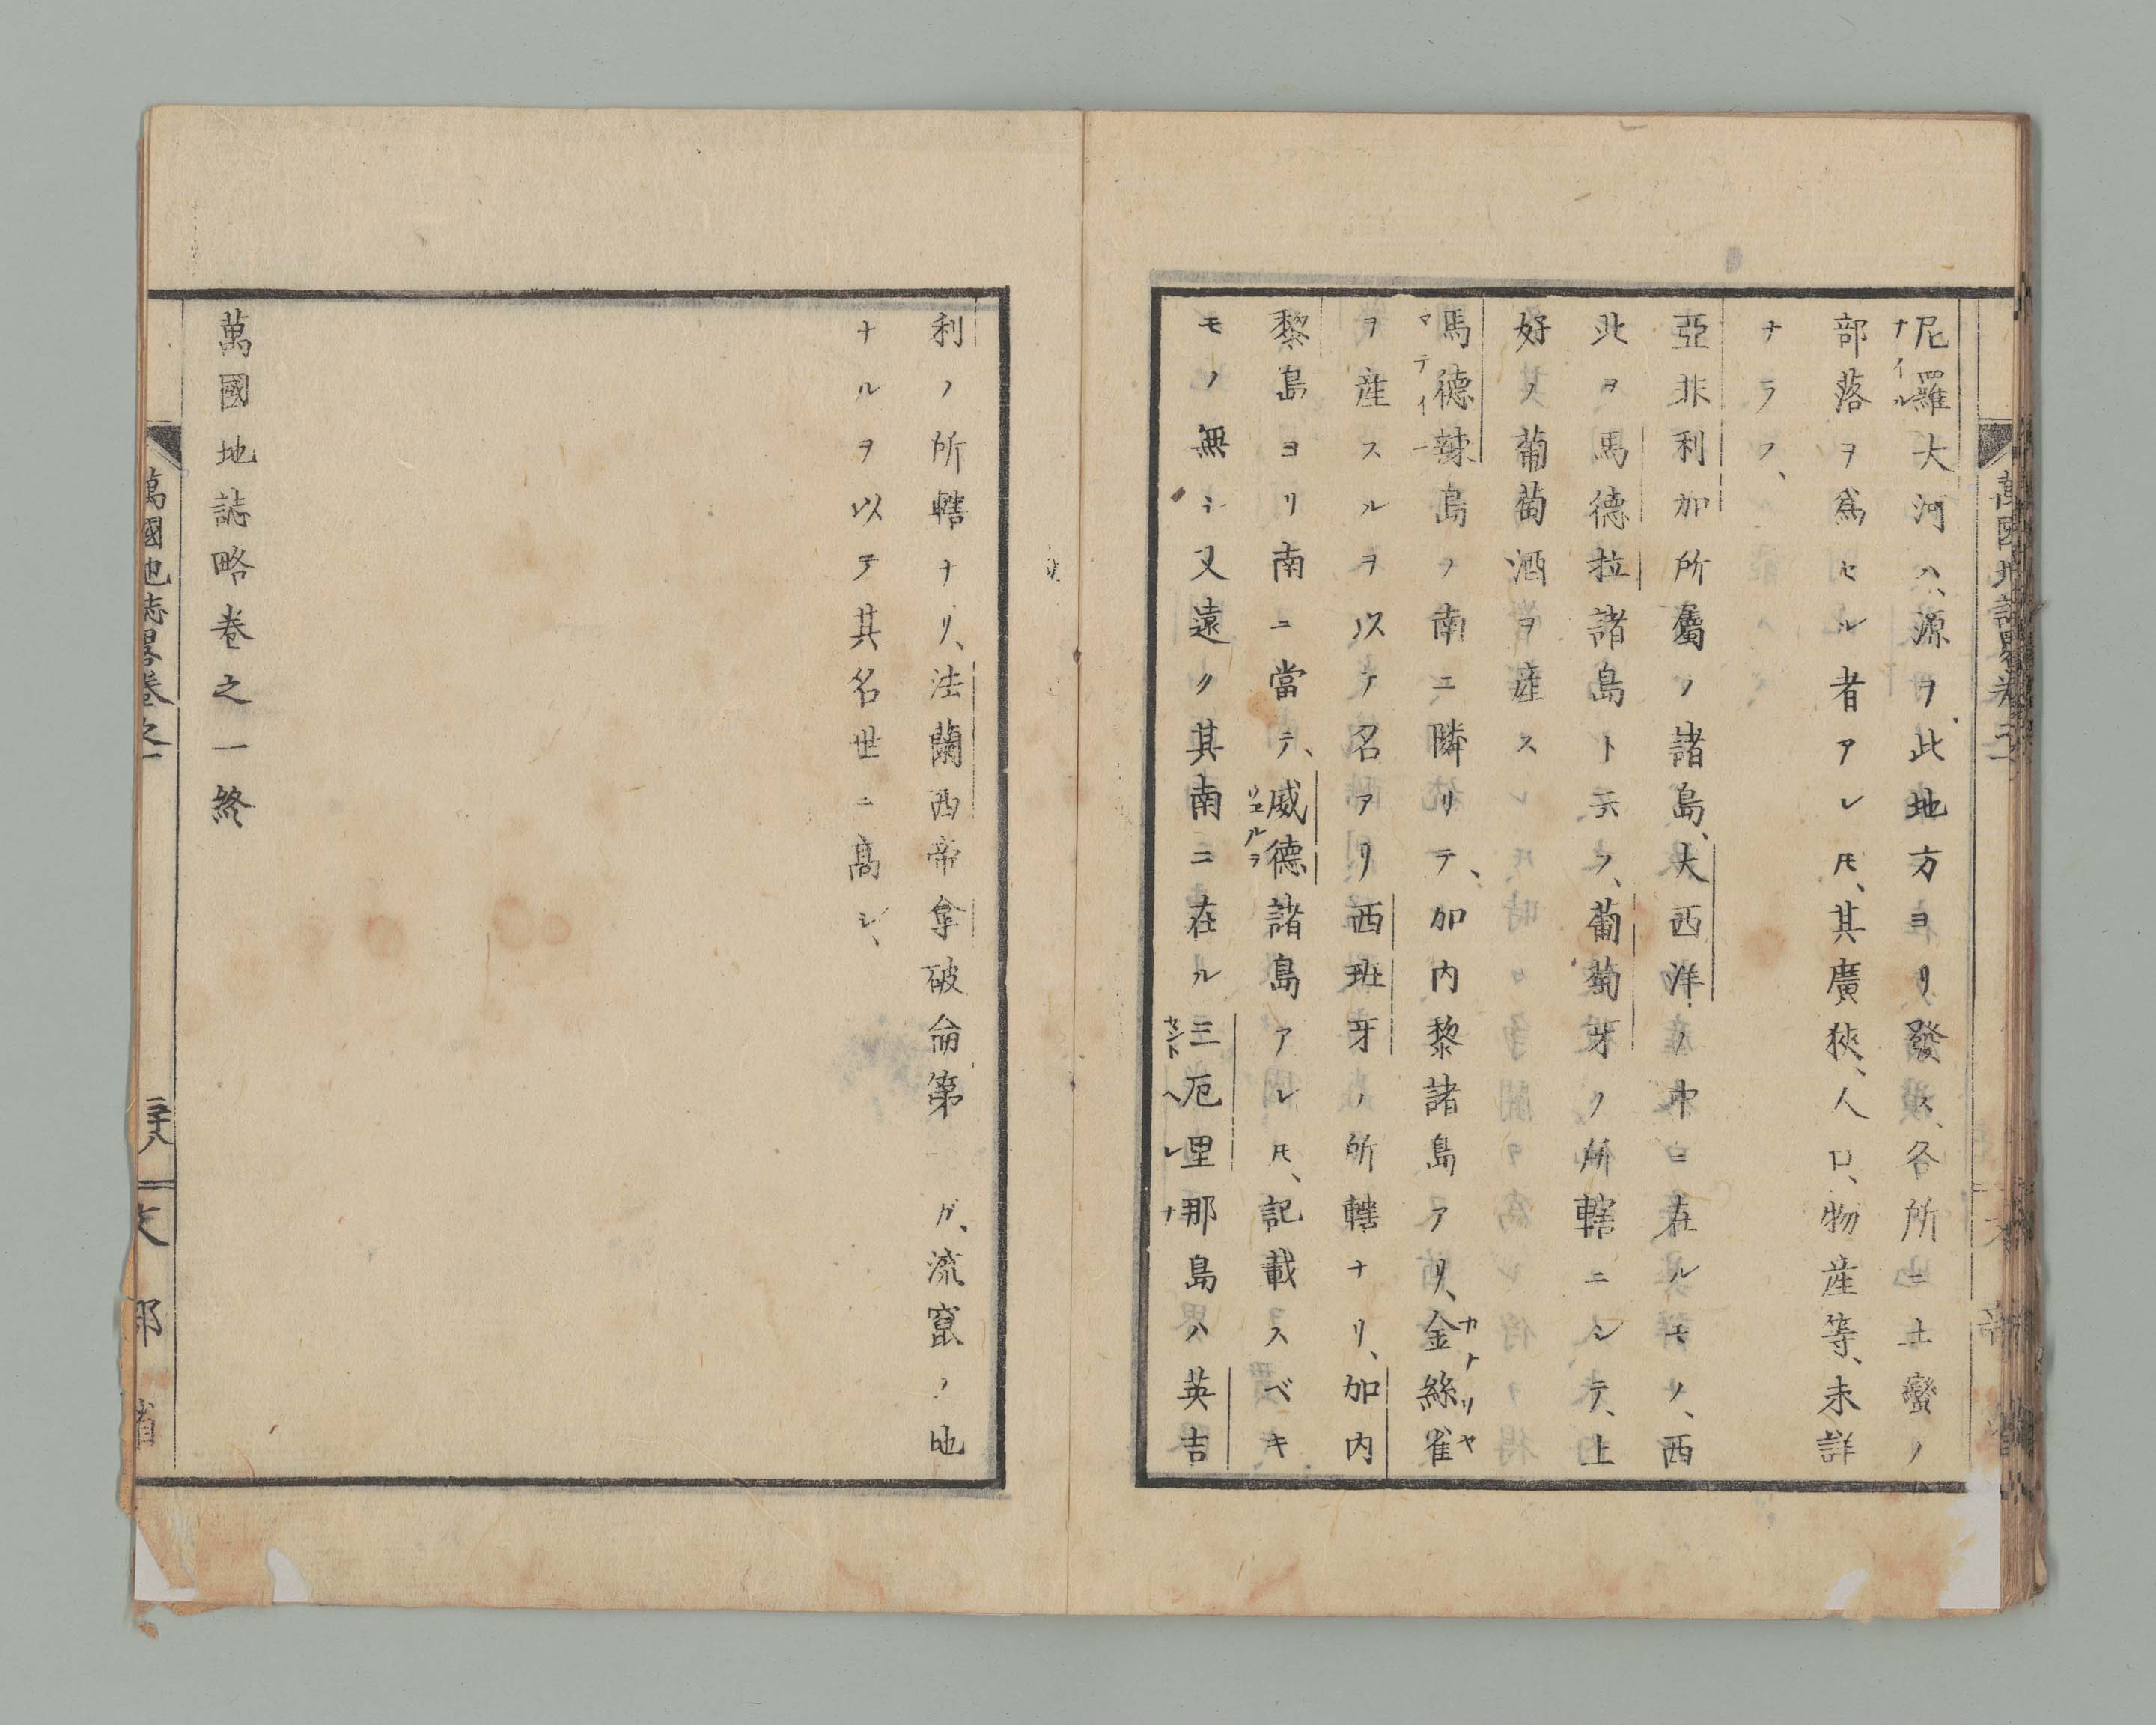 尼羅大河ハ、源ヲ此地方ヨリ發ス、各所ニ土蠻ノ
ナイル
部落ヲ爲セル者アレ𪜈、其廣狹、人口、物産等、未詳
ナラス、
亞非利加所屬ノ諸島、大西洋ノ中ニ在ルモノ、西
北ヲ馬德拉諸島ト云フ、葡萄牙ノ所轄ニシテ、上
好ノ葡萄酒ヲ産ス
馬德辣島ノ南ニ隣リテ、加内黎諸島アリ、金絲雀
マテイ
カナリヤ
ヲ産スルヲ以テ名アリ西班牙ノ所轄ナリ、加内
黎島ヨリ南ニ當テ、威德諸島アレ𪜈、記載スベキ
ウエルヲ
モノ無シ又遠ク其南ニ在ル三厄里那島ハ英吉
セントヘレナ
利ノ所轄ナリ、法蘭西帝拿破侖第一ガ、流竄ノ地
ナルヲ以テ其名世ニ高シ、
萬國地誌略卷之一終
萬國地誌畧卷之一
文部省